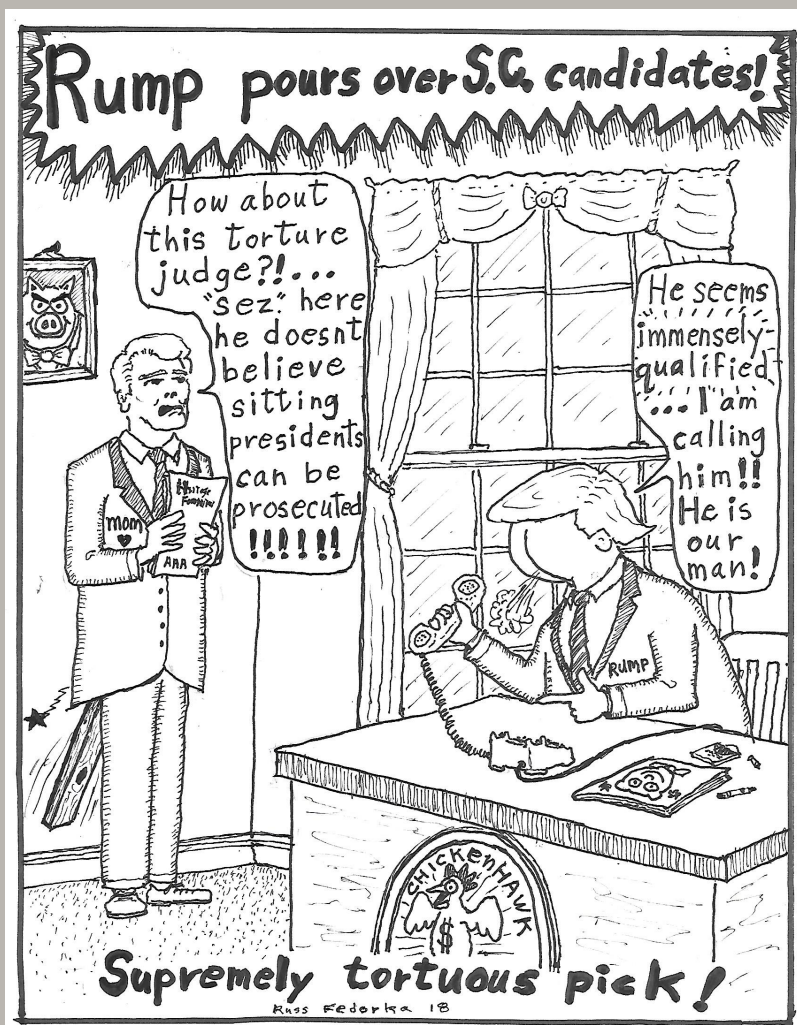 Rump pours over S.C. candidates!
How about
this torture
judge?!...
"sez." here
he doesnt
believe
sitting
presidents
can be
prosecuted
!!!!!!
He seems
immensely-
qualified
... I am
calling
him!!
He is
our
man!
mom
Heritage
Foundation
AAA
RUMP
CHICKENHAWK
$
Supremely tortuous pick!
Russ Fedorka 18